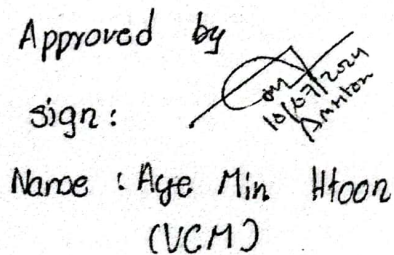 Approved by
sign:
on
10/07/2024
Name : Aye Min Htoon
(VCM)